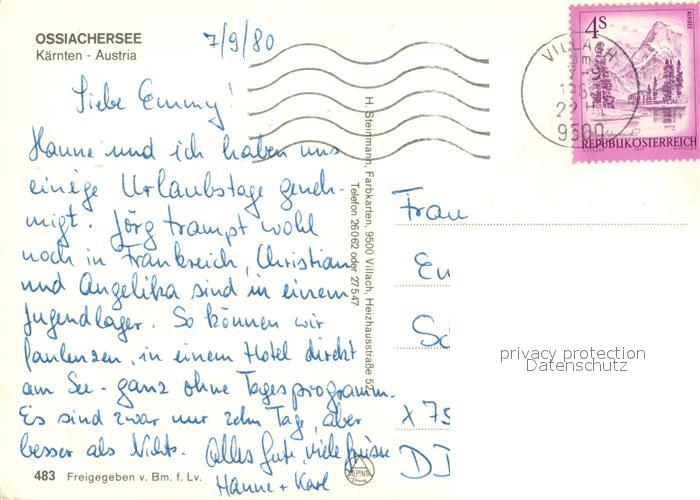 OSSIACHERSEE
Kärnten - Austria
7/9/80
Liebe Emmy!
Hanne und ich haben uns
einige Urlaubstage geneh-
migt. Jörg trampt wohl
noch in Frankreich, Christian
und Angelika sind in einem
Jugendlager. So können wir
faulenzen, in einem Hotel direkt
am See - ganz ohne Tagesprogramm.
Es sind zwar nur zehn Tage, aber
besser als Nichts. Alles Gute, viele Grüsse
Hanne + Karl
483 Freigegeben v. Bm. f. Lv.
H. Steinmann, Farbkarten, 9500 Villach, Heizhausstraße 52
Telefon 26062 oder 27547
ALPINA
Druck
VILLACH
9500
4S
ALMSEE
REPUBLIK ÖSTERREICH
Frau
Em
Sc
X 75
DD
privacy protection
Datenschutz